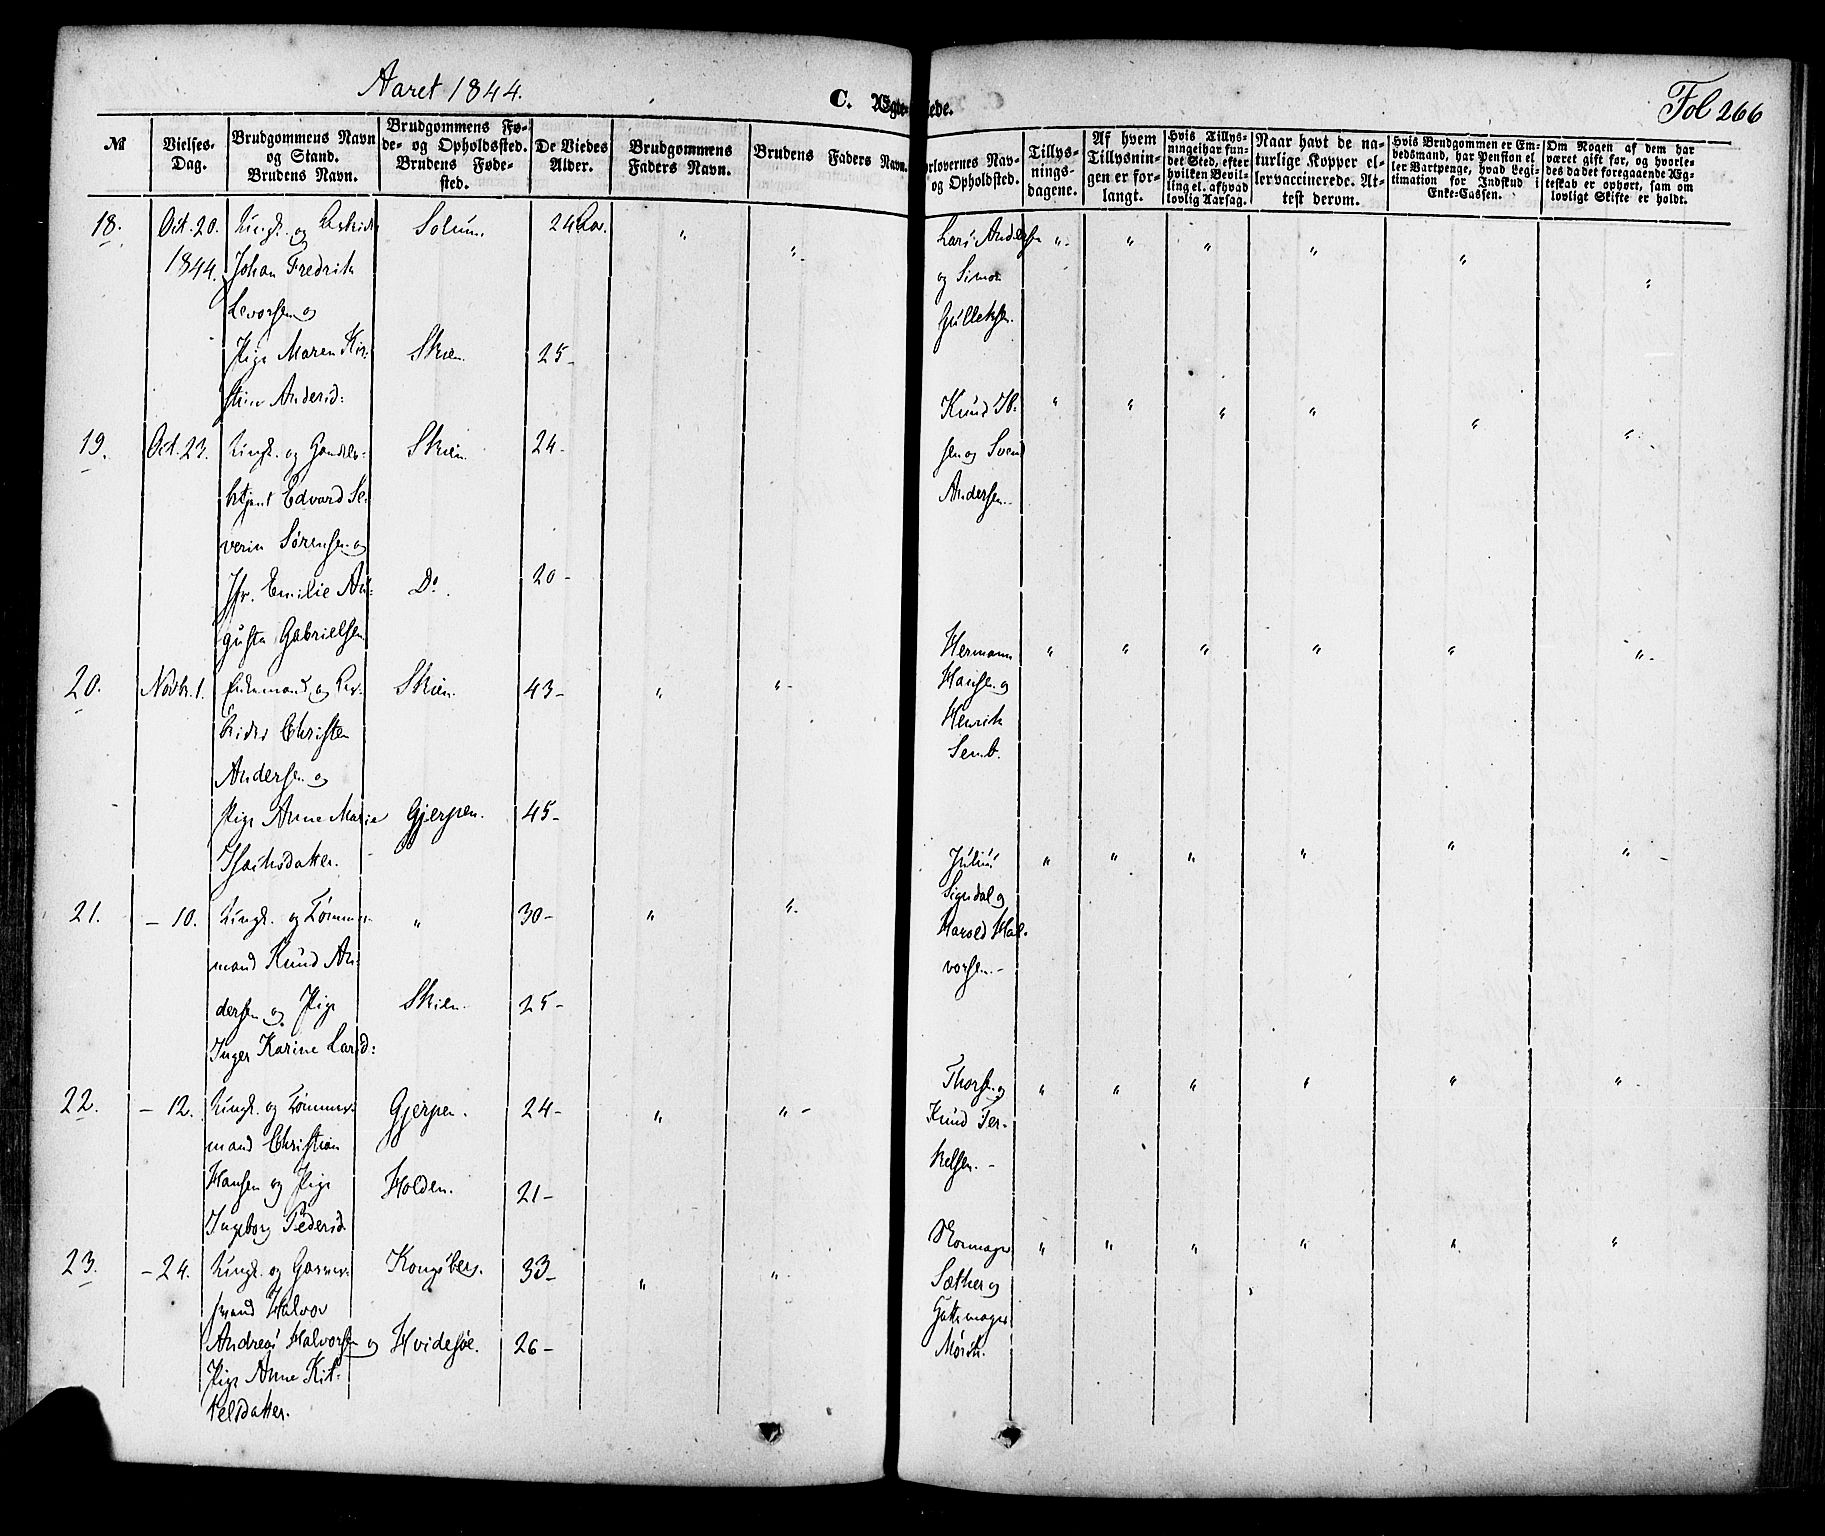 Aaret 1844.
C. Ægte-
iede.
Fol 266
№
Vielses-
Dag.
Brudgommens Navn
og Stand.
Brudens Navn.
Brudgommens Fø-
de- og Opholdssted.
Brudens Føde-
sted.
De Viedes
Alder.
Brudgommens
Faders Navn.
Brudens Faders Navn.
orlovernes Nav-
og Opholdsted.
Tillys-
nings-
dagene.
Af hvem
Tillysnin-
gen er for-
langt.
Hvis Tillys-
ning ei har fun-
det Sted, efter
hvilken Bevil-
ling el. af hvad
lovlig Aarsag.
Naar havt de na-
turlige Kopper el-
ler vaccinerede. At-
test derom.
Hvis Brudgommen er Em-
bedsmand, har Pension el
ler Vartpenge, hvad Legi-
timation for Indskud i
Enke-Cassen.
Om Nogen af dem har
været gift før, og hvorle-
des da det foregaaende Æg-
teskab er ophørt, sam om
lovligt Skifte er holdt.
18. Oct. 20. Ungk. og Solum. 24 " "
1844. Johan Fredrik
Levorsen og
Pige Maren Kir- Skien. 25-
stine Andersd:
Lars Andersen " " " " " "
og Simon
Gulleksen.
19. Oct. 22. Ungk. og Handels- Skien. 24-
betjent Edvard Se-
verin Sørensen og
Jfr. Emilie Au- Do. 20-
gusta Gabrielsen
Knud
sen og Svend " " " " " "
Andersen.
20. Novbr. 1. Enkemand og Ar- Skien. 43- " "-
beider Christen
Andersen og
Pige Anne Marie Gjerpen. 45-
Isaksdatter.
Hermann " " " " " "-
Hansen og
Henrik
Semb.
21. - 10. Ungk. og Tømmer- " 30- " "-
mand Knud An-
dersen og Pige Skien. 25-
Inger Karine Larsd:
Julius " " " " " "-
Sigrdal og
Harold Hal-
vorsen.-
22. - 12. Ungk. og Tømmer- Gjerpen. 24- " "-
mand Christian
Hansen og Pige Holden. 21-
Ingeborg Pedersd.
Thorsen og " " " " " "-
Knud Ter-
kelsen.-
23. - 24. Ungk. og Garver- Kongsberg. 33- " "
svend Halvor
Andreas Halvorsen og Hvidesøe. 26-
Pige Anne Kit-
telsdatter.
Skomager " " " " " "
Sæther og
Hattemager
Mørch.